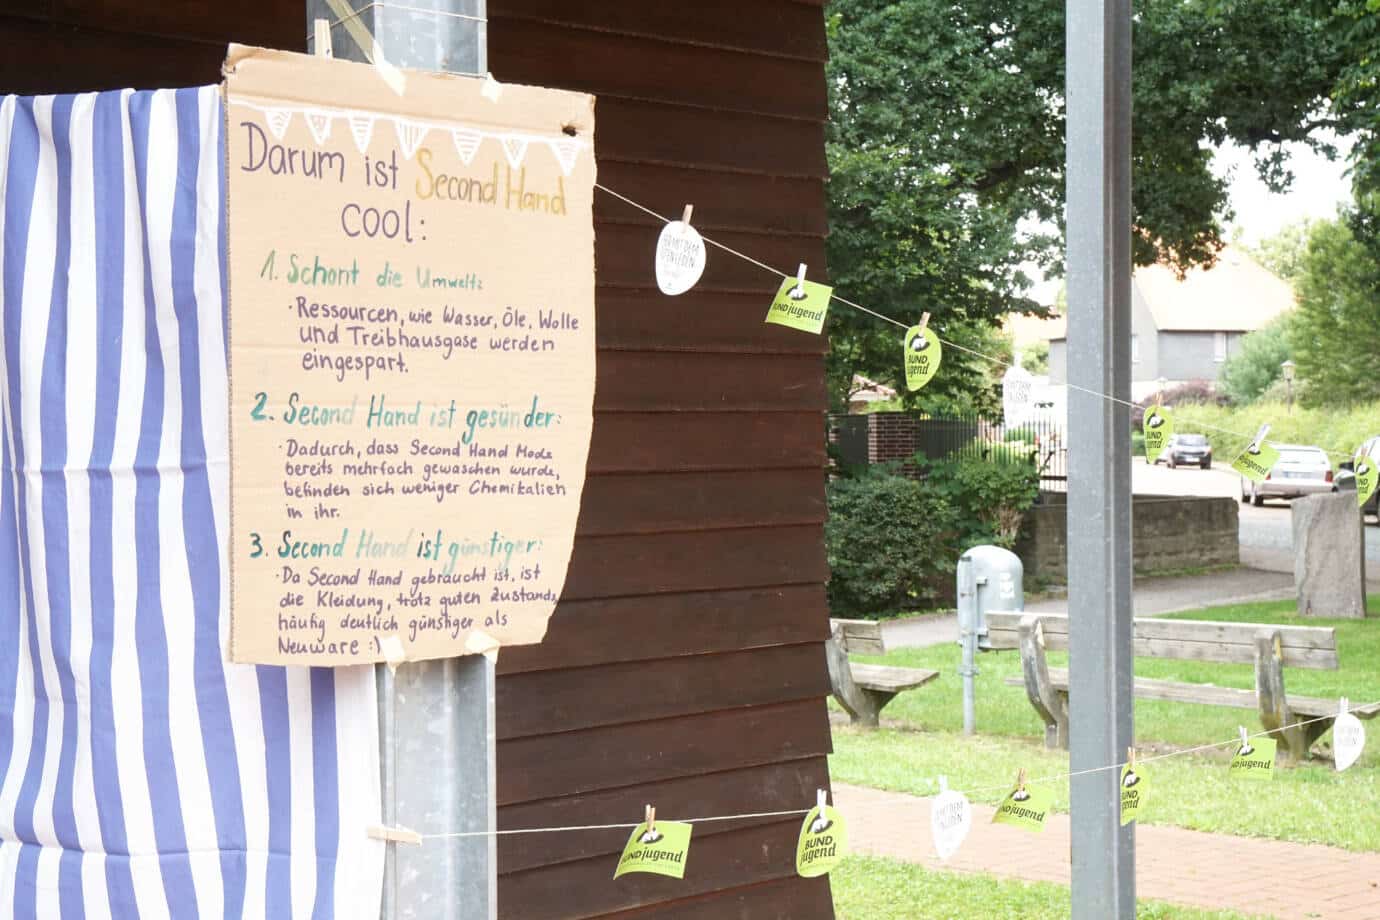 Darum ist Second Hand
cool:
1. Schont die Umwelt:
· Ressourcen, wie Wasser, Öle, Wolle
und Treibhausgase werden
eingespart.
2. Second Hand ist gesünder:
· Dadurch, dass Second Hand Mode
bereits mehrfach gewaschen wurde,
befinden sich weniger Chemikalien
in ihr.
3. Second Hand ist günstiger:
· Da Second Hand gebraucht ist, ist
die Kleidung, trotz guten Zustands,
häufig deutlich günstiger als
Neuware :)
BUNDjugend
BUND
jugend
BUND
jugend
BUNDjugend
BUND
jugend
BUNDjugend
BUND
jugend
BUNDjugend